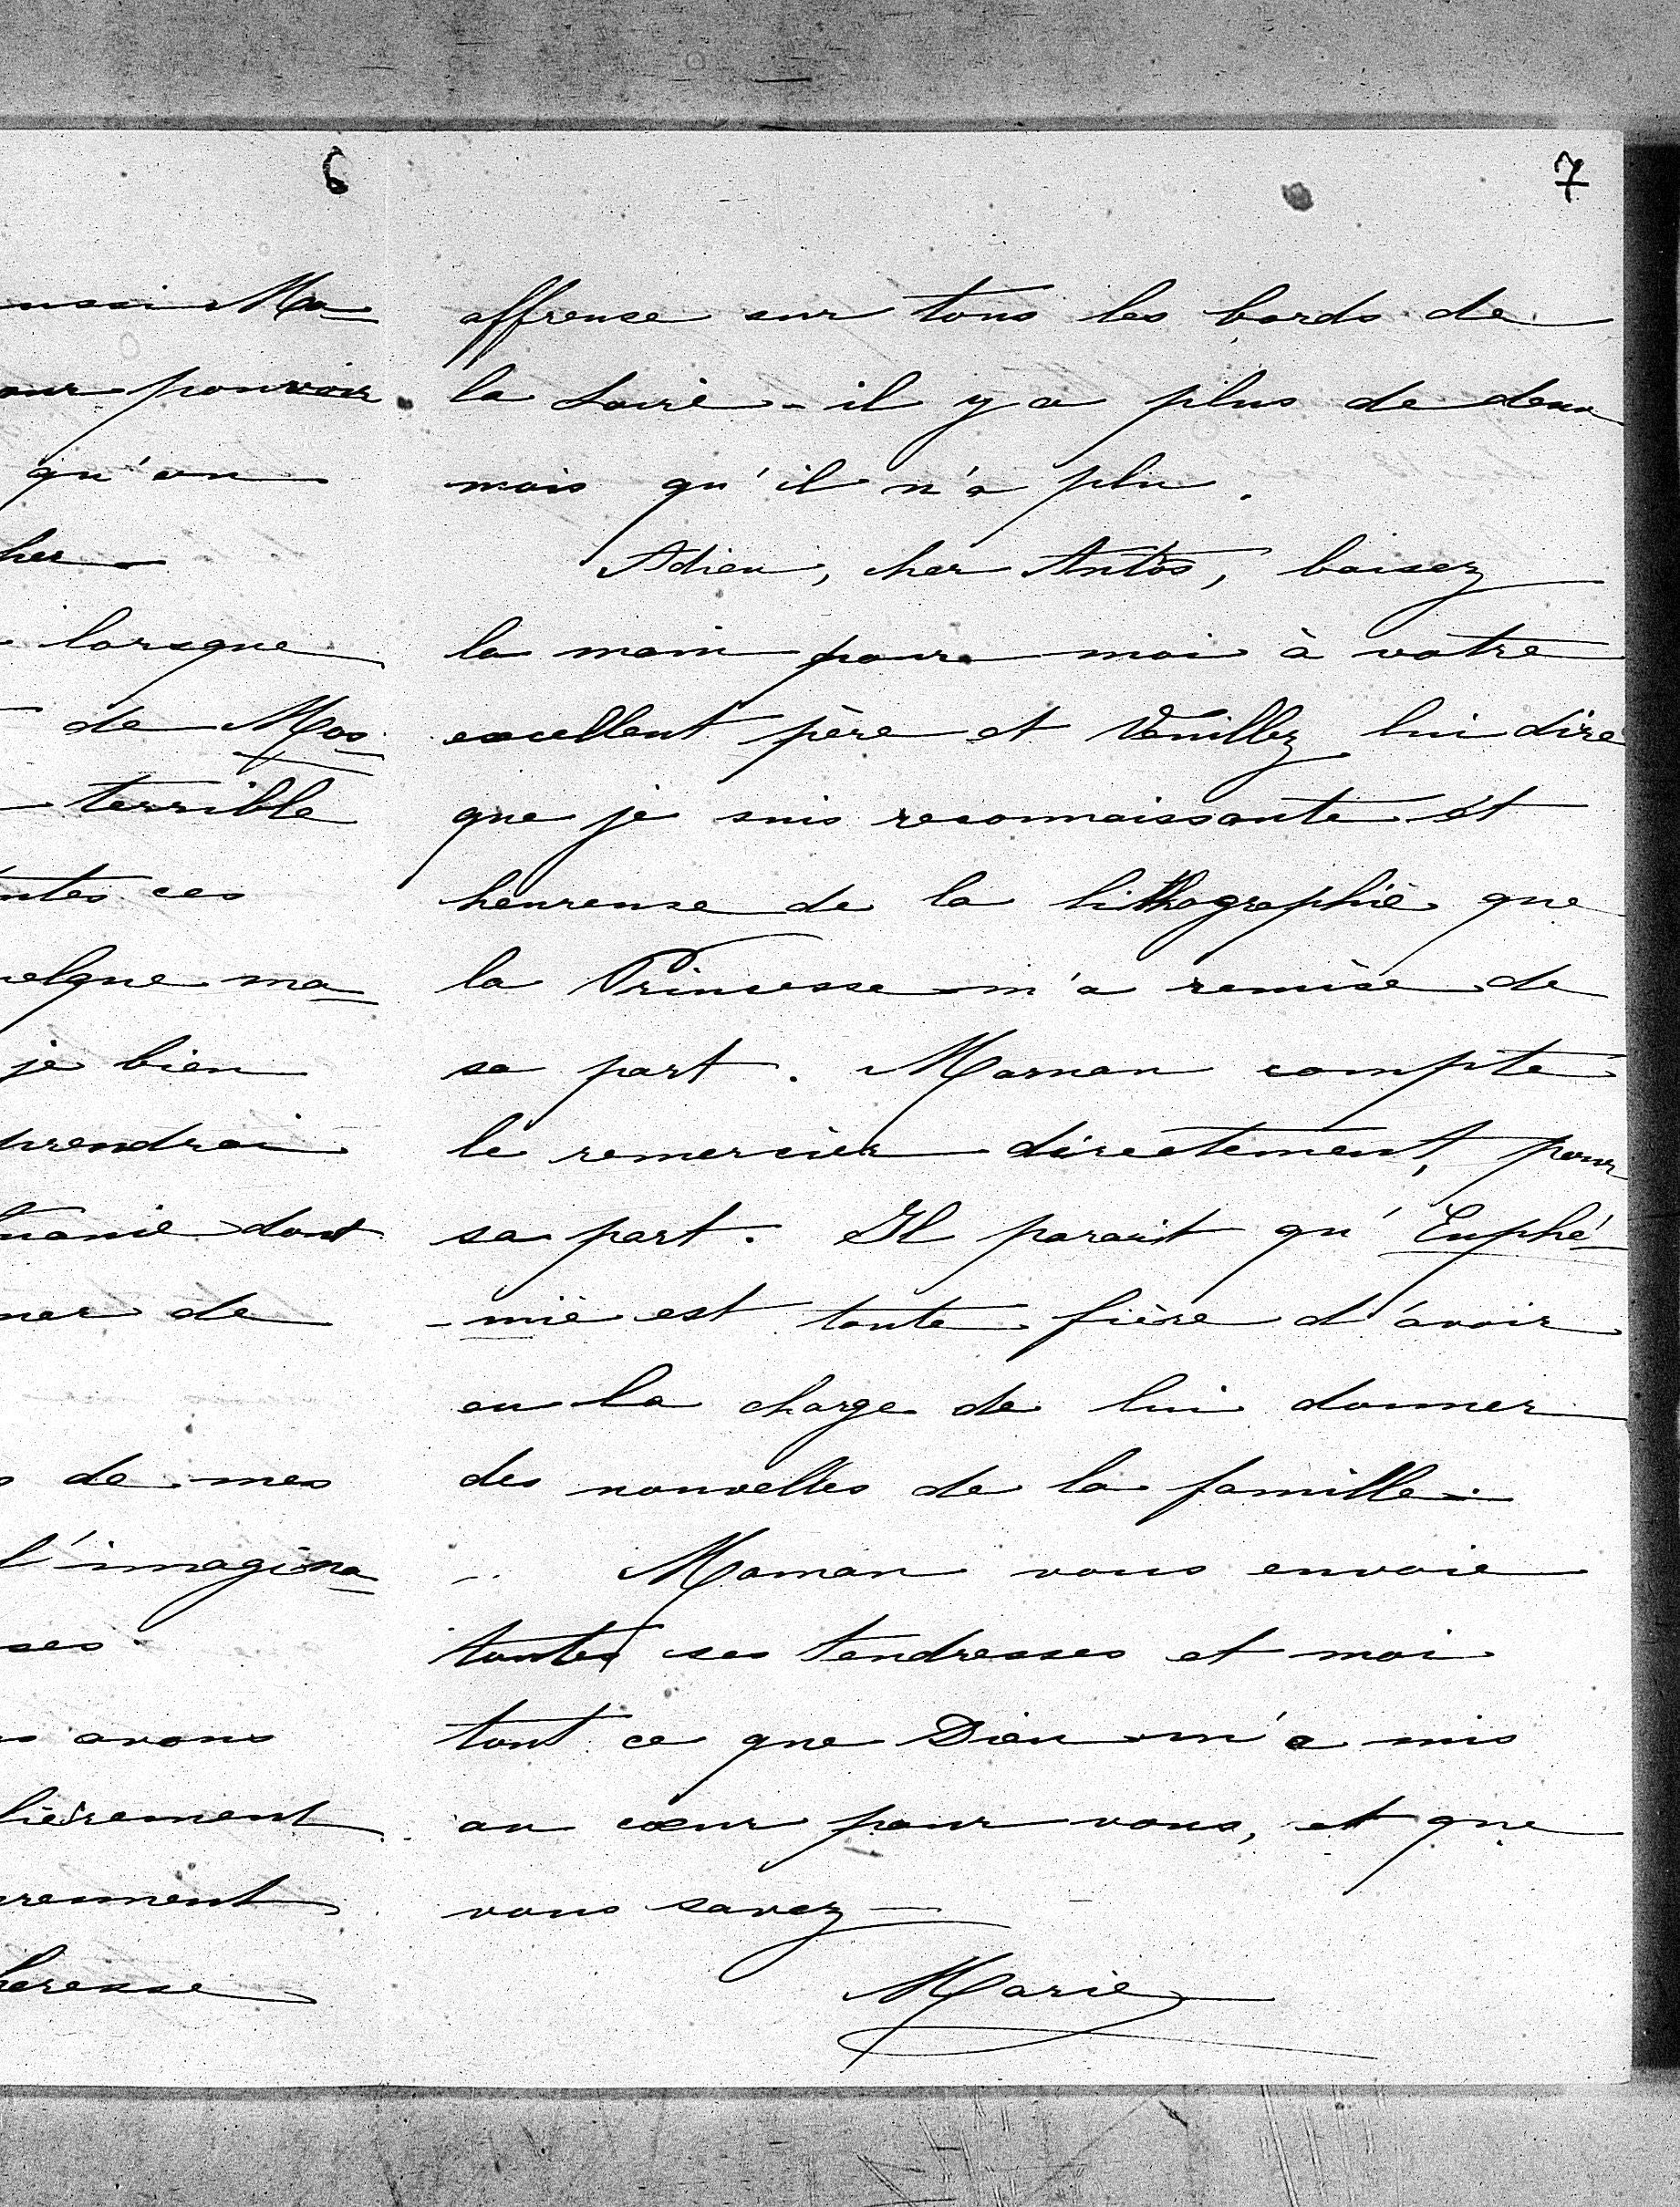 6
ussi Ma-
our pouvoir
qu'on
her
lorsque
de Mos-
terrible
ntes ces
uelque ma-
je bien
prendrai
uanie dont
ner de
de mes
l'imagina-
ses
s avons
lièrement
rement
heresse
7
affreuse sur tous les bords de
la Loire - il y a plus de deux
mois qu'il n'a plu.
Adieu, cher Antos, baisez
la main pour moi à votre
excellent père et veuillez lui dire
que je suis reconnaissante et
heureuse de la lithographie que
la Princesse m'a remise de
sa part. Maman compte
le remercier directement, pour
sa part. Il parait qu'Euphé-
-mie est toute fière d'avoir
eu la charge de lui donner
des nouvelles de la famille.
Maman vous envoie
toutes ses tendresses et moi
tout ce que Dieu m'a mis
au cœur pour vous, et que
vous savez -
Marie